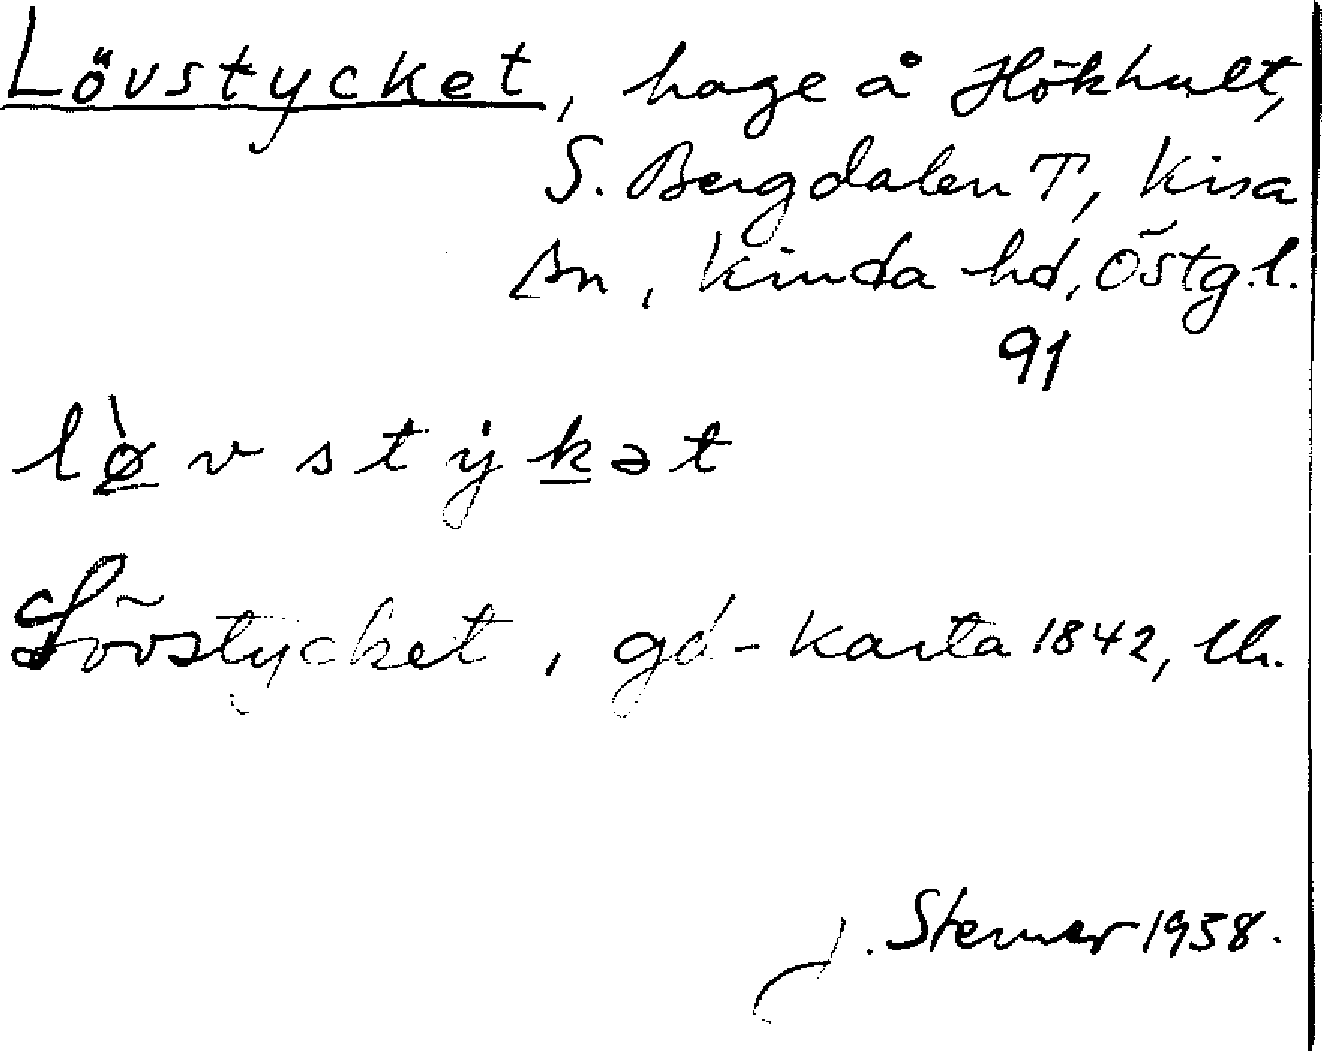 Lövstycket, hage å Hökhult,
S. Bergdalen T, Kisa
sn, Kinda hd, Östg.l.
91
lø̀vstẏkət
Lövstycket, gd-karta 1842, lh.
J. Sterner 1958.